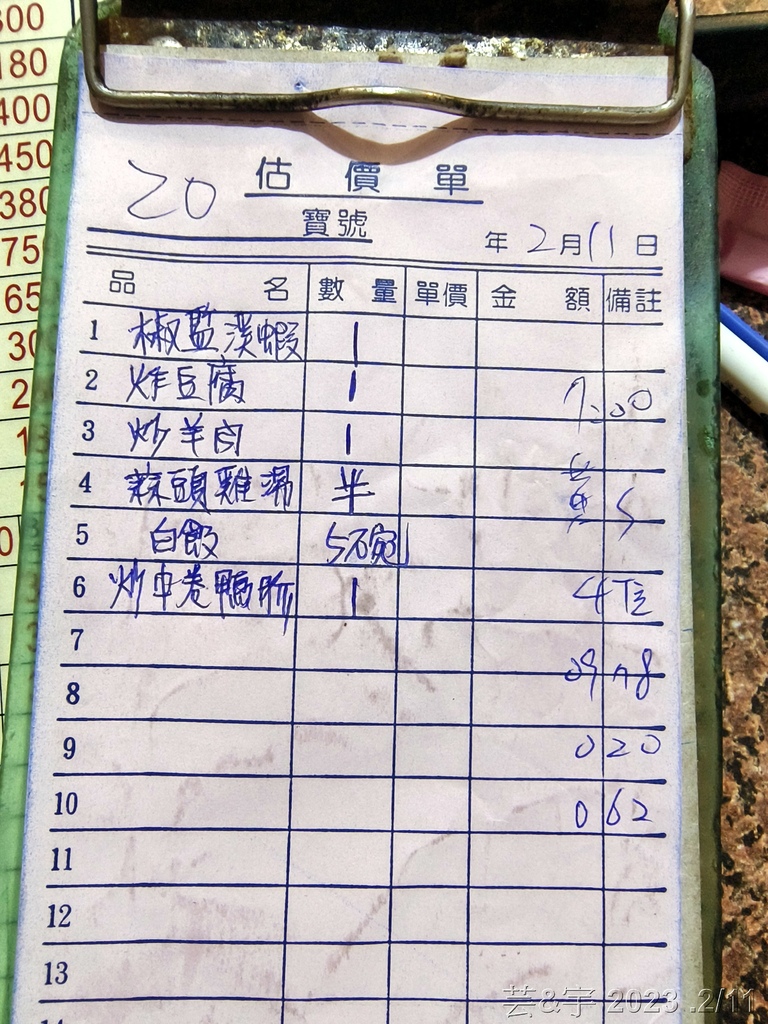 300
180
400
450
380
75
65
30
2
1
1
0
20 估價單
寶號
年 2月11日
品名 數量 單價 金額 備註
1 椒塩溪蝦 1
2 炸豆腐 1 7:00
3 炒羊肉 1
4 蒜頭雞湯 半 黃S
5 白飯 5碗
6 炒中卷鴨胗 1 4位
7
8 0978
9 020
10 062
11
12
13
14
芸&宇 2023 .2/11